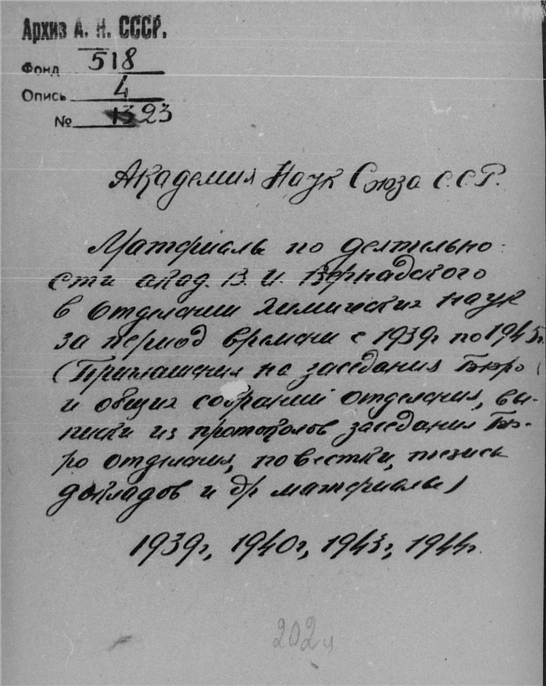 Архив А. Н. СССР.
Фонд 518
Опись 4
№ 1323
Академия Наук Союза С.С.Р.
Материалы по деятельно-
сти акад. В. И. Вернадского
в Отделении Химических наук
за период времени с 1939г по 1945г.
(Приглашения на заседания Бюро
и общих собраний отделения, вы-
писки из протоколов заседания Бю-
ро отделения, повестки, тезисы
докладов и др материалы)
1939г, 1940г, 1943г, 1944г.
202 л